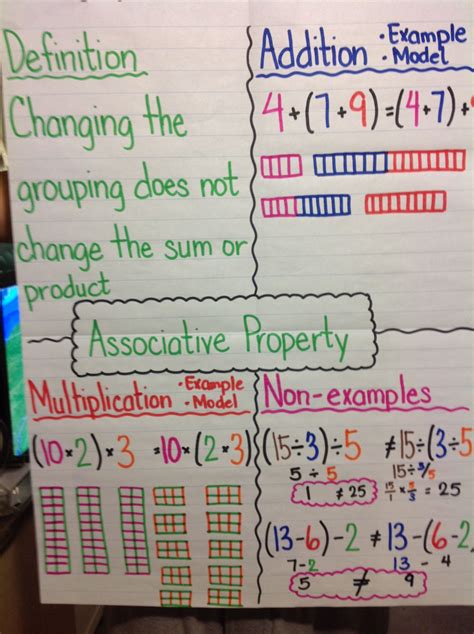 Definition
Changing the
grouping does not
change the sum or
product
Addition · Example
· Model
4+(7+9)=(4+7)+
Associative Property
Multiplication · Example
· Model
(10×2)×3 =10×(2×3)
Non-examples
(15÷3)÷5 ≠15÷(3÷5
5÷5 15÷3/5
1 ≠25 15/1 × 5/3 = 25
(13-6)-2 ≠ 13-(6-2
7-2 13 - 4
5 ≠ 9